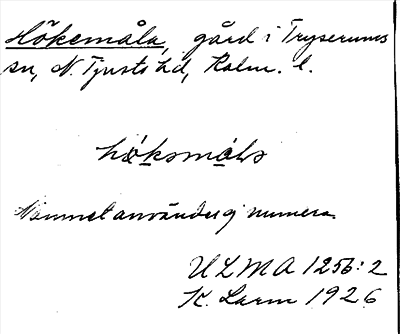 Hökemåla, gård i Tryserums
sn, N. Tjusts hd, Kalm. l.
höksmåls
Namnet användes ej numera
ULMA 1256:2
K. Larm 1926